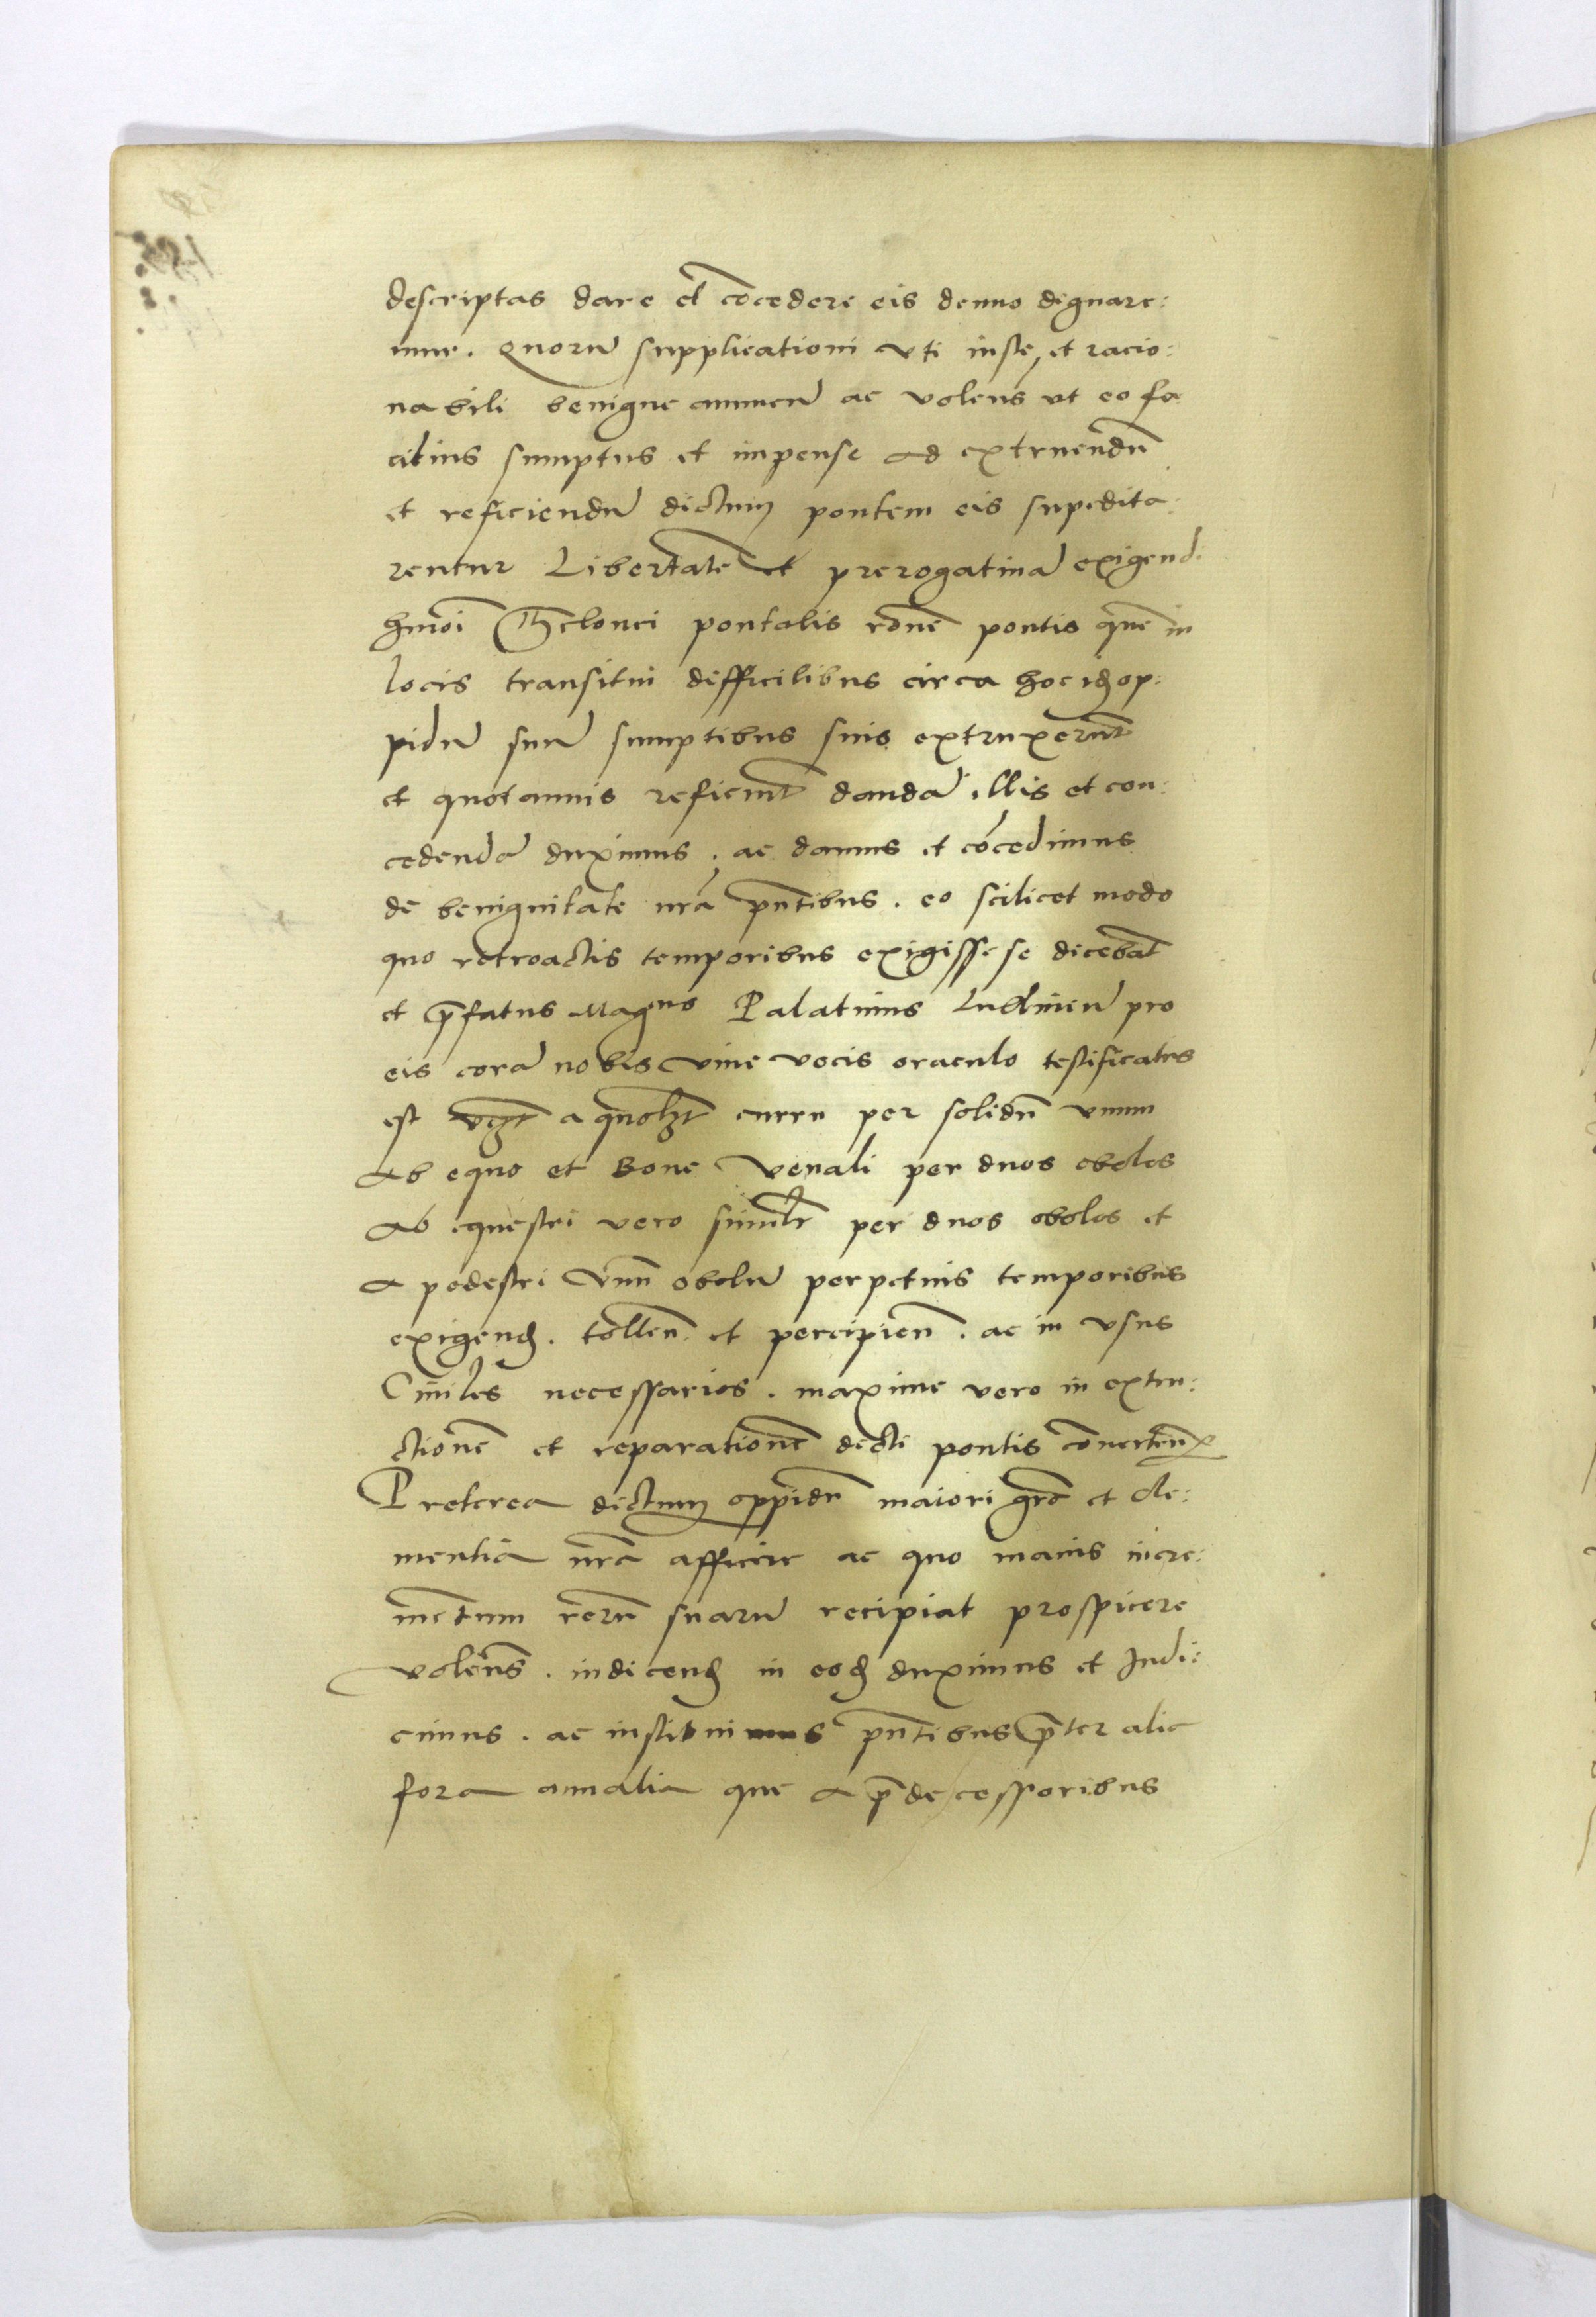 descriptas dare et co͞cedere eis denuo dignare:
mur. Quorū supplicationi vti iuste, et racio:
nabili benigne annuen̄ ac volens vt eo fa
cilius sumptus et impense ad extruendū
et reficiendū dictum pontem eis supedita:
rentur Libertatē et prerogatiuā exigend.
hmōi Thelonei pontalis rōne pontis quē in
locis transitui difficilibus circa hoc idē op:
pidū suū sumptibus suis extruxerūt
et quotannis reficiūt dandā illis et con:
cedendā duximus. ac damus et cōcedimus
de benignitate nrā pn̄tibus. eo scilicet modo
quo retroactis temporibus exigisse se dicebāt
et p̄fatus Magcus Palatinus Lublinen̄ pro
eis corā nobis viue vocis oraculo testificatus
est vz̄t a quolz̄t curru per solidū vnum
ab equo et Boue venali per duos obolos
ab equestri vero similr̄ per duos obolos et
a pedestri vnū obolū perpetuis temporibus
exigend. tollen̄. et percipien̄. ac in vsus
Ciuiles necessarios. maxime vero in extru:
ctionē et reparationē dicti pontis cōuerten̄.
Preterea dictum oppidū maiori grā et cle:
mentia nrā afficere ac quo maius incre:
mētum rerū suarū recipiat prospicere
volen̄s. indicend in eod duximus et Indi:
cimus. ac instituimus pn̄tibus p̄ter alia
fora annalia que a p̄decessoribus